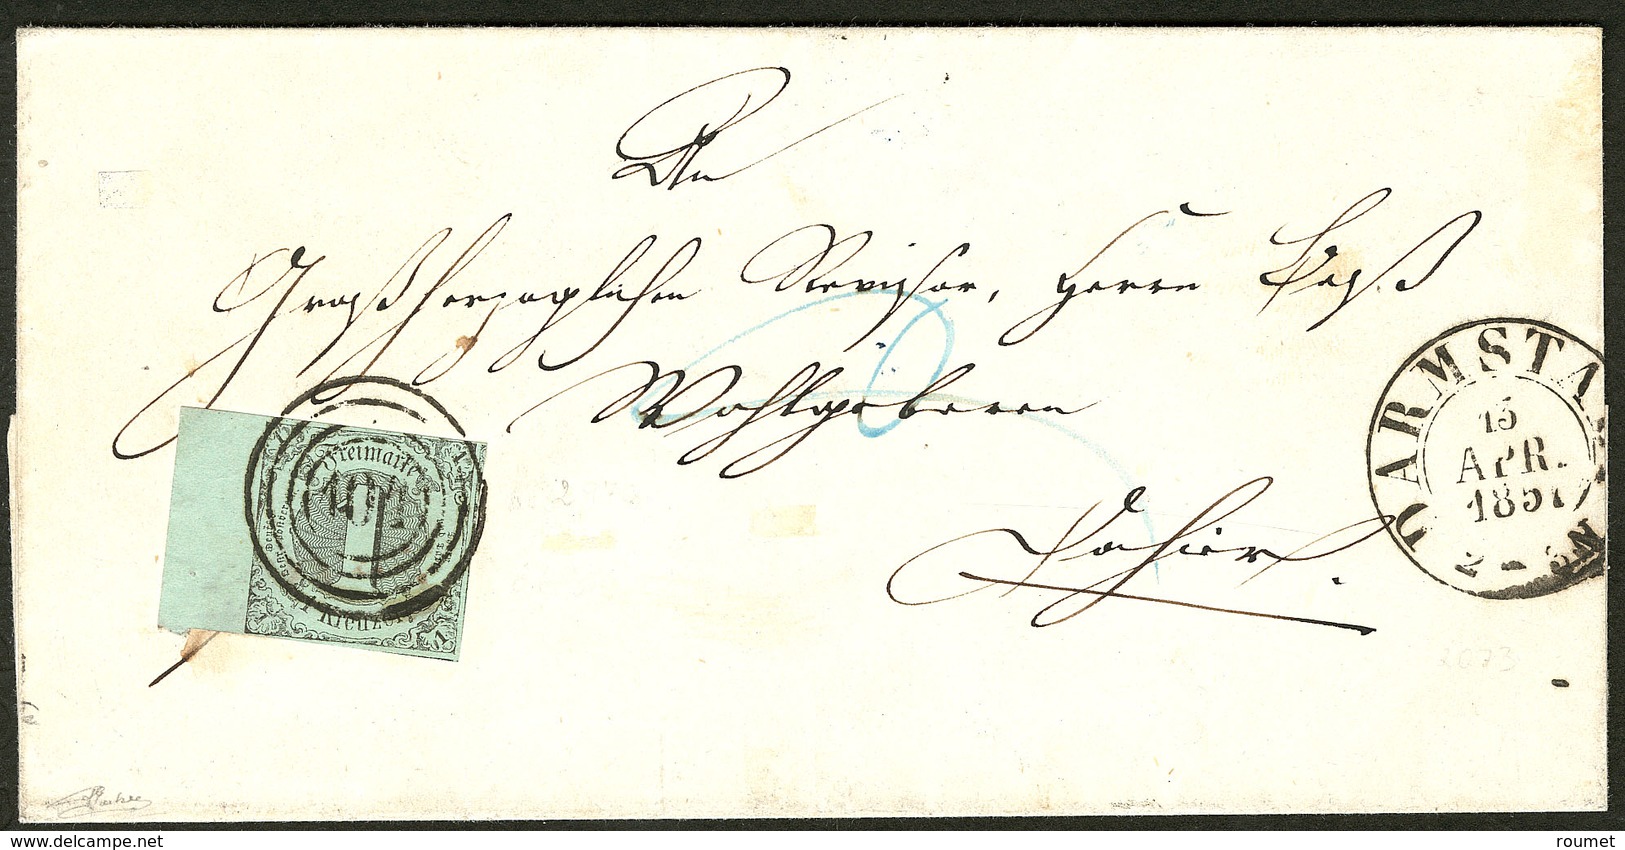 An
Großherzoglichen Revisor, Herrn
Wohlgeboren
dahier.
Freimarke
1
1 Kreuzer.
DARMSTA
15
APR.
1857
2 - 3 N
2073
www.delcampe.net
roumet